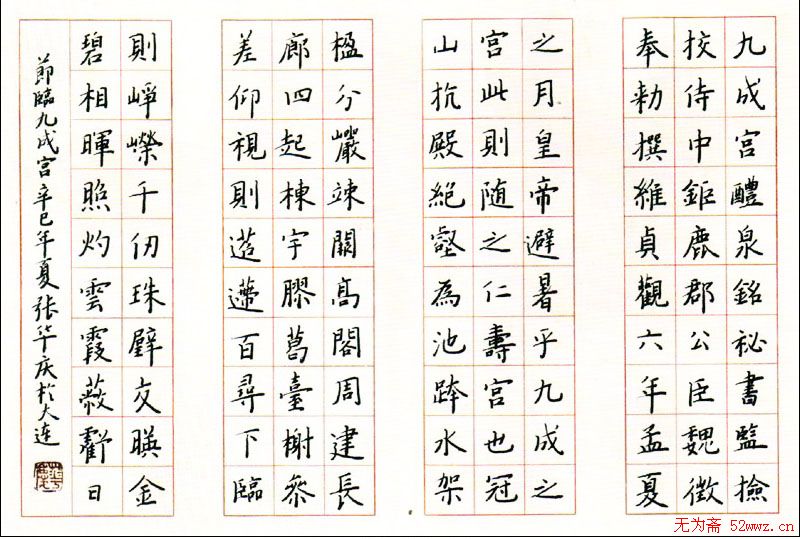 九成宮醴泉銘祕書監撿
挍侍中鉅鹿郡公臣魏徵
奉勑撰維貞觀六年孟夏
之月皇帝避暑乎九成之
宮此則随之仁壽宮也冠
山抗殿絕壑為池跨水架
楹分巖竦闕高閣周建長
廊四起棟宇膠葛臺榭參
差仰視則迢遰百尋下臨
則崢嶸千仞珠璧交暎金
碧相暉照灼雲霞蔽虧日
節臨九成宮辛巳年夏张华庆於大连
无为斋 52wwz.cn